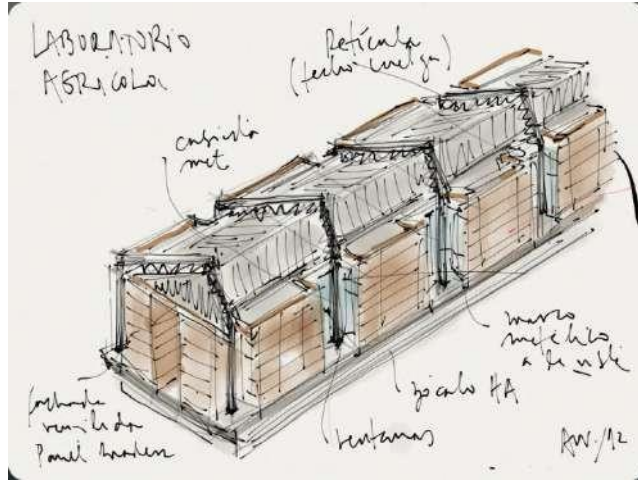 LABORATORIO
AGRICOLA
Retícula
(techo cuelga)
cubierta
met
marco
metálico
a la vista
zócalo HA
ventanas
fachada
ventilada
Panel madera
AW./12